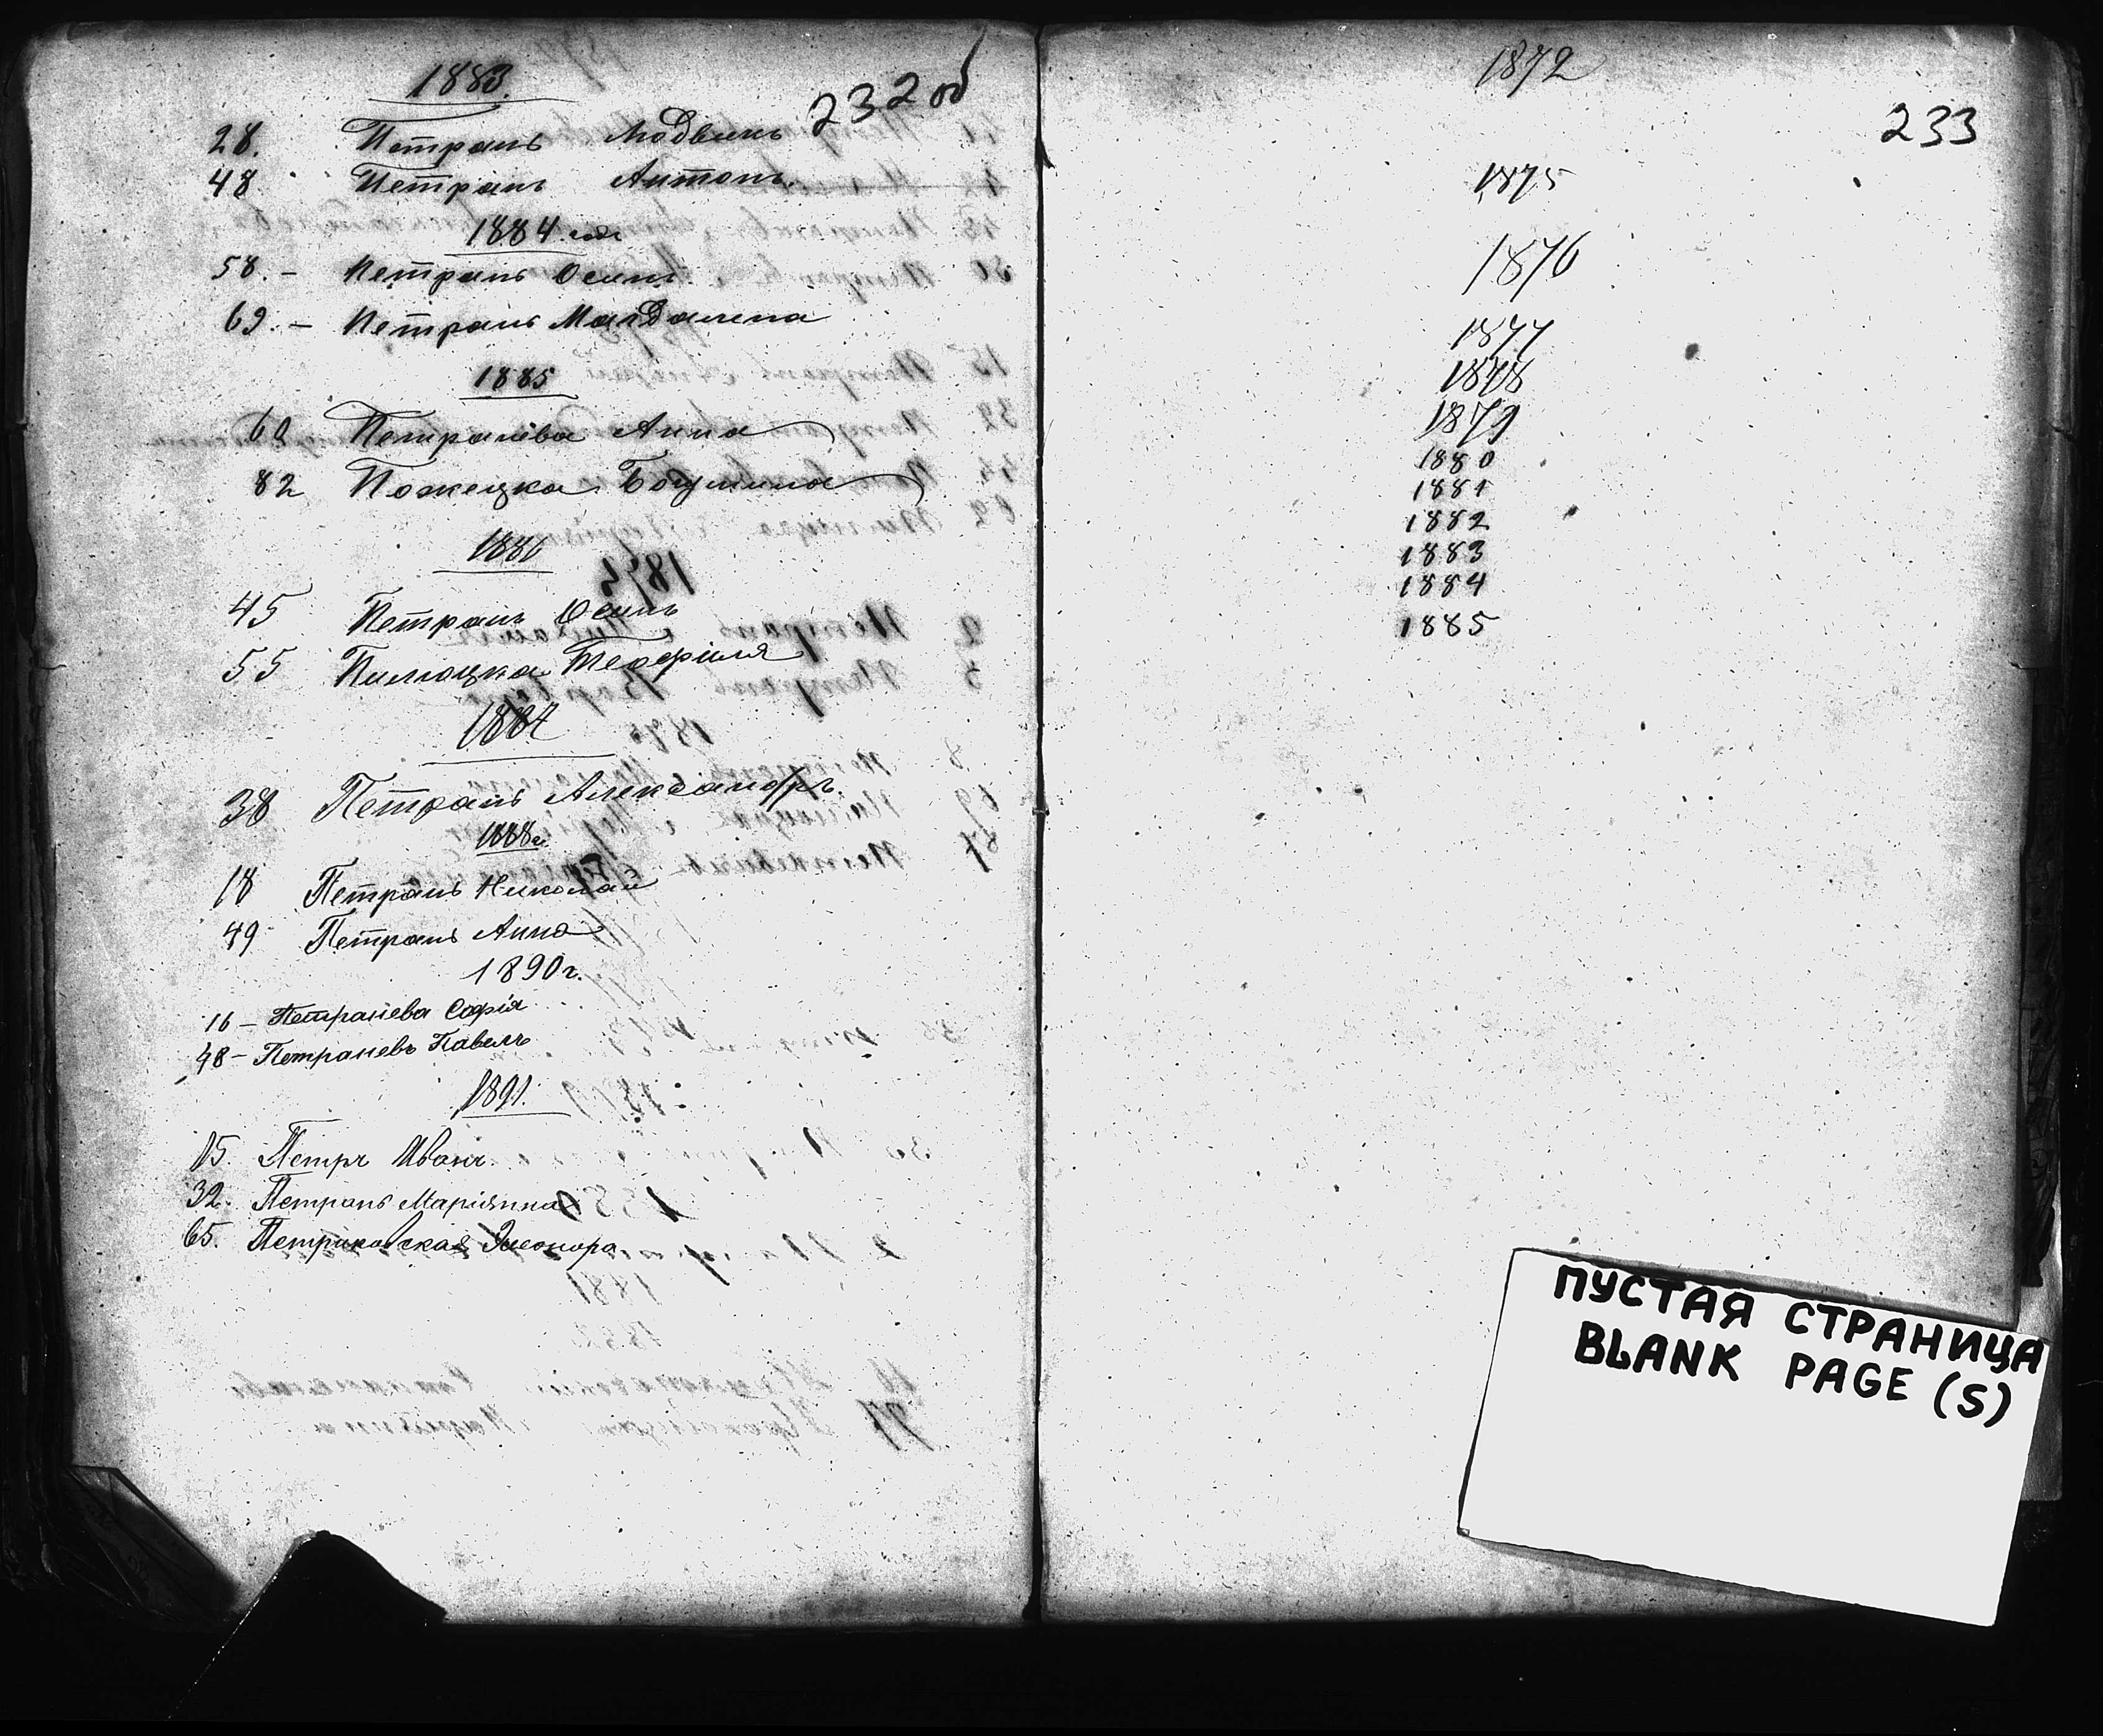 1883.
232 об
28. Петрань Людвикъ
48. Петрань Антонъ.
1884 года
58. – Петрань Осипъ
69. – Петрань Магдалена
1885
62 Петранёва Анна
82 Пожецка Богумила
1886
45 Петрань Осипъ
55 Пилюцка Теофиля
1887
38 Петрань Александръ.
1888 г.
18 Петрань Николай
49 Петрань Анна
1890 г.
16 – Петранева Софія
48 – Петраневъ Павелъ
1891.
15. Петръ Иванъ.
32. Петрань Маріянна
65. Петраковская Элеонора
1872
233
1875
1876
1877
1878
1879
1880
1881
1882
1883
1884
1885
ПУСТАЯ СТРАНИЦА
BLANK PAGE (S)